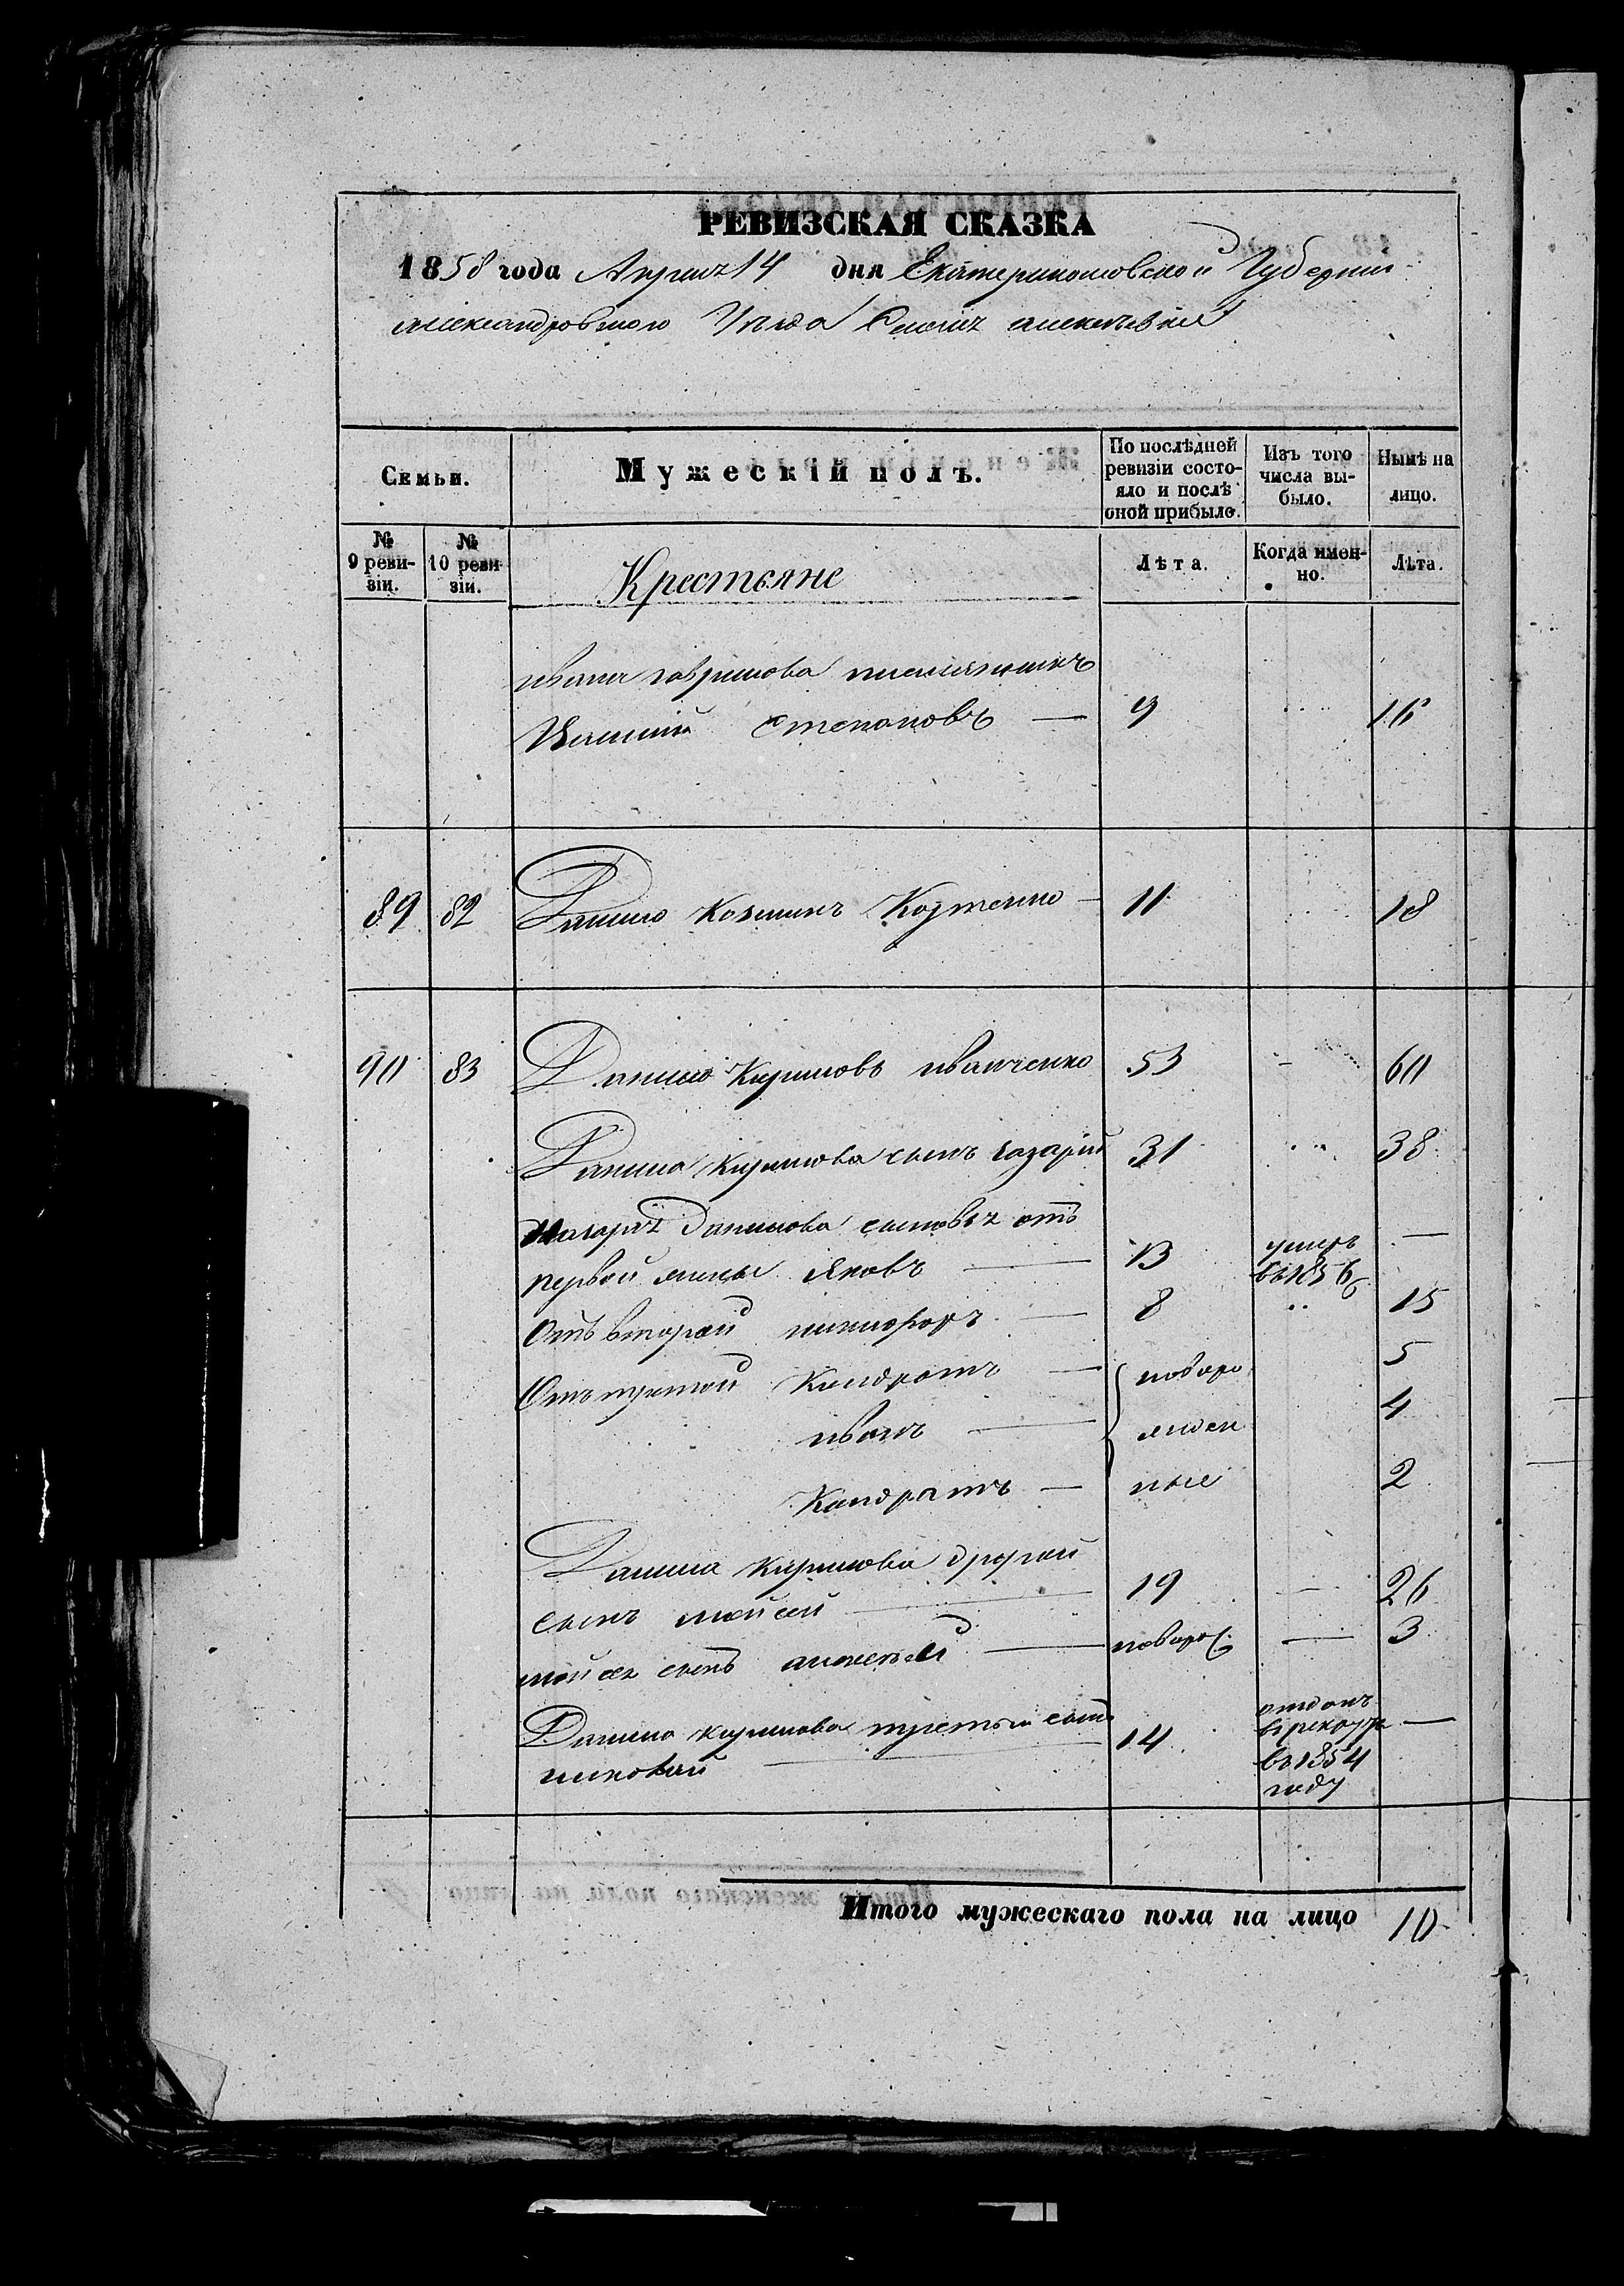 РЕВИЗСКАЯ СКАЗКА
1858 года Апреля 14 дня Екатеринославской Губернии
александровского Уезда Алексеевки
Семьи. Мужескій полъ. По послѣдней ревизіи состояло и послѣ оной прибыло. Изъ того числа выбыло. Нынѣ на лицо.
№ 9 ревизіи. № 10 ревизіи. Крестьяне Лѣта. Когда именно. Лѣта.
ивана гаврилова племянникъ
Степановъ — 9 16
89 82 Данило Козминъ — 11 18
90 83 Данило Кириловъ иванченко 53 - 60
Данила Кирилова сынъ 31 38
Данилова сыновья отъ
первой жены Яковъ — 13 умеръ въ 1856 —
Отъ второй никифоръ — 8 15
Отъ третей Кондратъ — новоро 5
иванъ — жден 4
Кондратъ — ные 2
Данила Кирилова другой
сынъ мойсей — 19 — 26
мойсея сынъ алексей — новорож. — 3
Данила кирилова третий сынъ
николай — 14 отданъ в рекруты в 1854 году —
Итого мужескаго пола на лицо 10